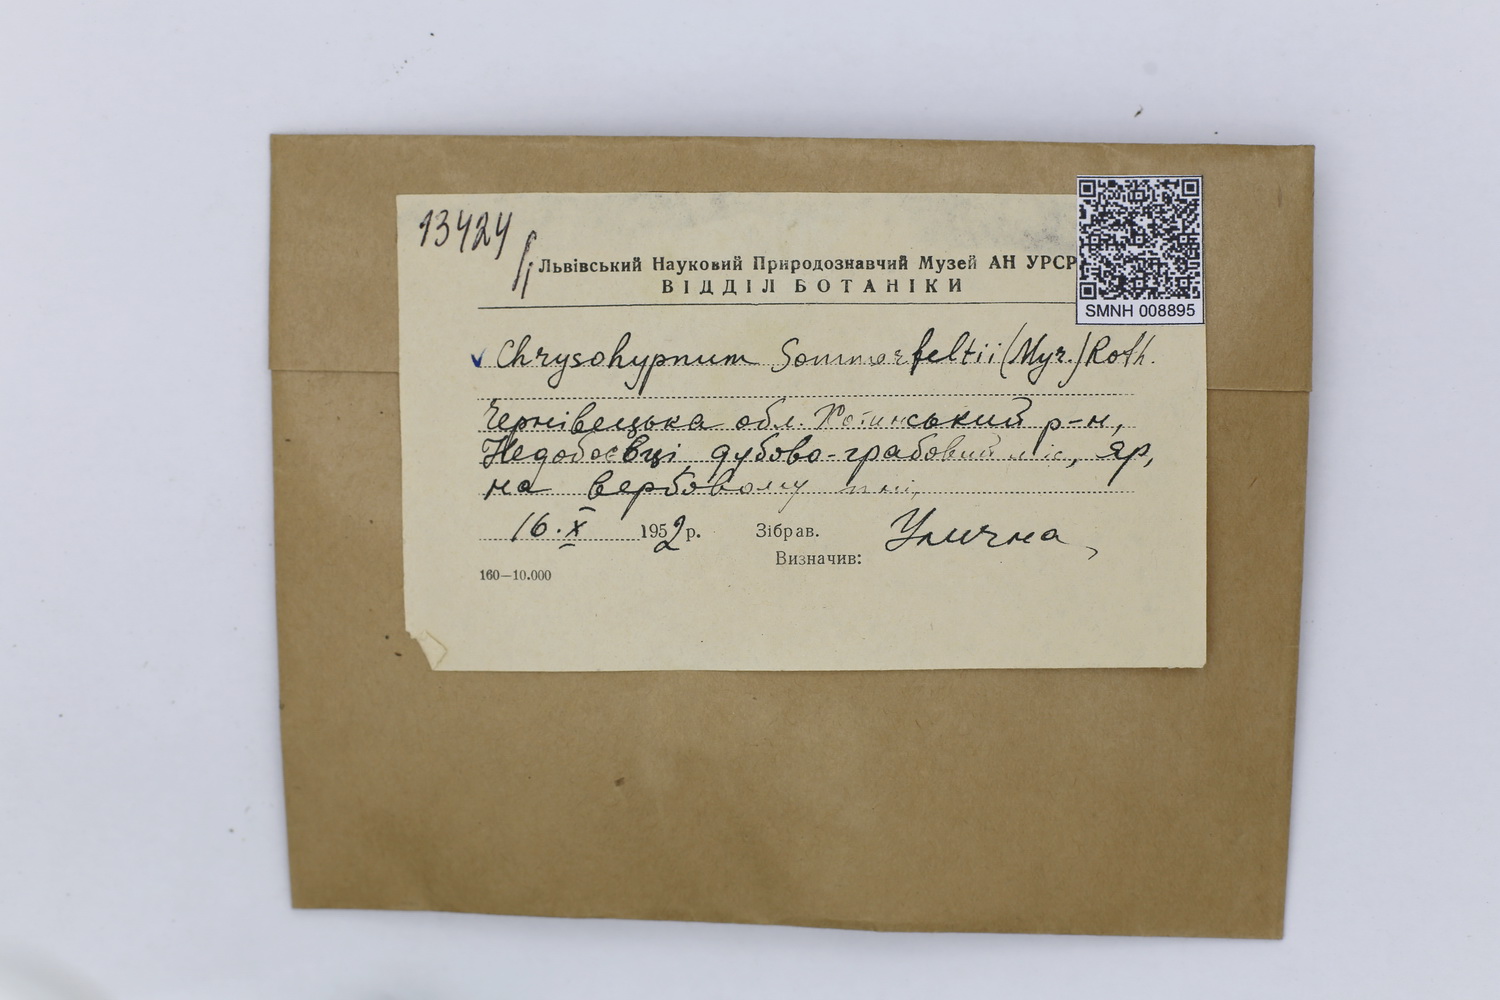 13424
Львівський Науковий Природознавчий Музей АН УРСР
ВІДДІЛ БОТАНІКИ
SMNH 008895
Chrysohypnum Sommerfeltii (Myr.) Roth.
Чернівецька обл. Хотинський р-н,
Недобоєвці, дубово-грабовий ліс, яр,
на вербовому пні,
16.X 1952 р. Зібрав. Улична,
Визначив:
160—10.000